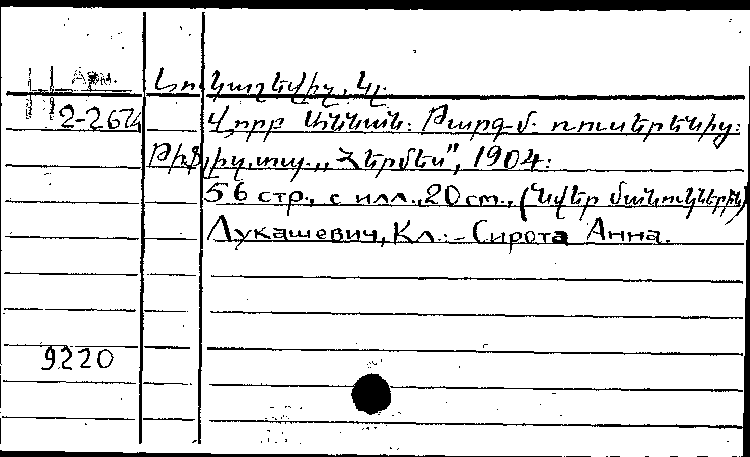 Арм. Լուկաշևիչ, Կլ.
2-2674 Վորբ Աննան: Թարգմ. ռուսերենից:
Թիֆլիս, տպ. „Հերմես", 1904:
56 стр., с илл., 20 см., (Նվեր մանուկներին)
Лукашевич, Кл. - Сирота Анна.
9220